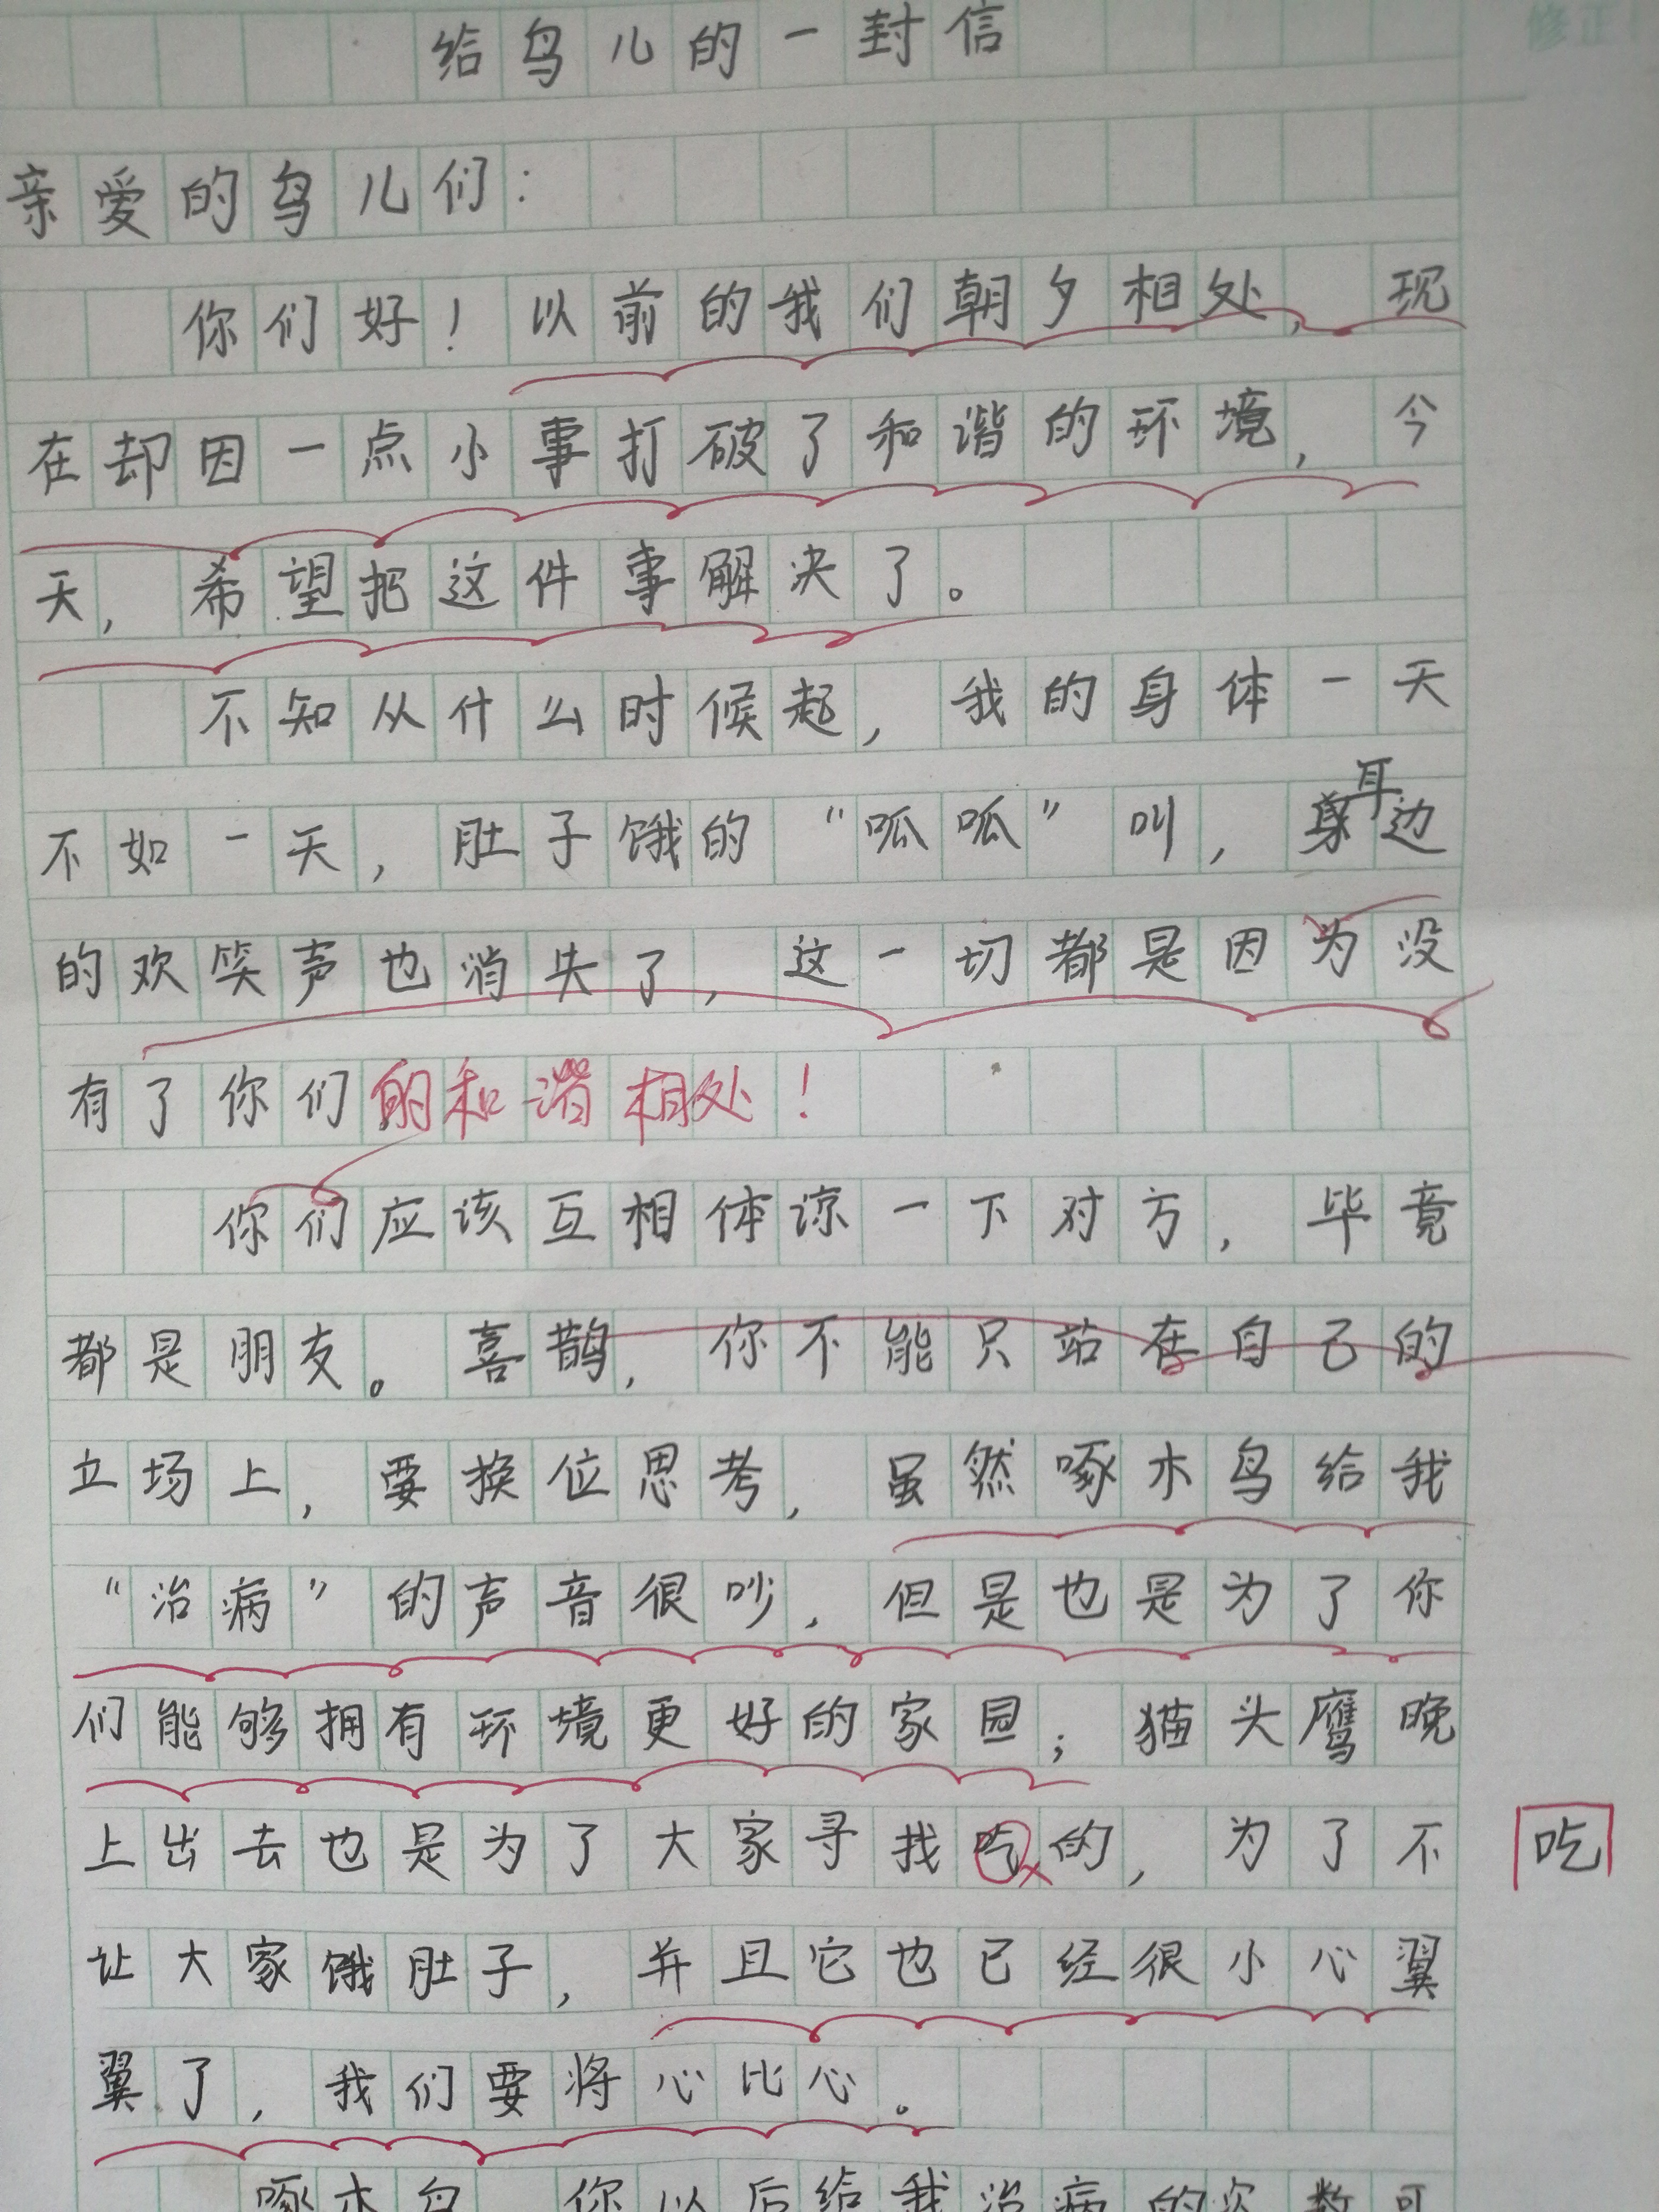 修正
给鸟儿的一封信
亲爱的鸟儿们：
你们好！以前的我们朝夕相处，现
在却因一点小事打破了和谐的环境，今
天，希望把这件事解决了。
不知从什么时候起，我的身体一天
耳
不如一天，肚子饿的“呱呱”叫，身边
的欢笑声也消失了，这一切都是因为没
有了你们的和谐相处！
你们应该互相体谅一下对方，毕竟
都是朋友。喜鹊，你不能只站在自己的
立场上，要换位思考，虽然啄木鸟给我
“治病”的声音很吵，但是也是为了你
们能够拥有环境更好的家园；猫头鹰晚
上出去也是为了大家寻找吃的，为了不
吃
让大家饿肚子，并且它也已经很小心翼
翼了，我们要将心比心。
啄木鸟，你以后给我治病的次数可